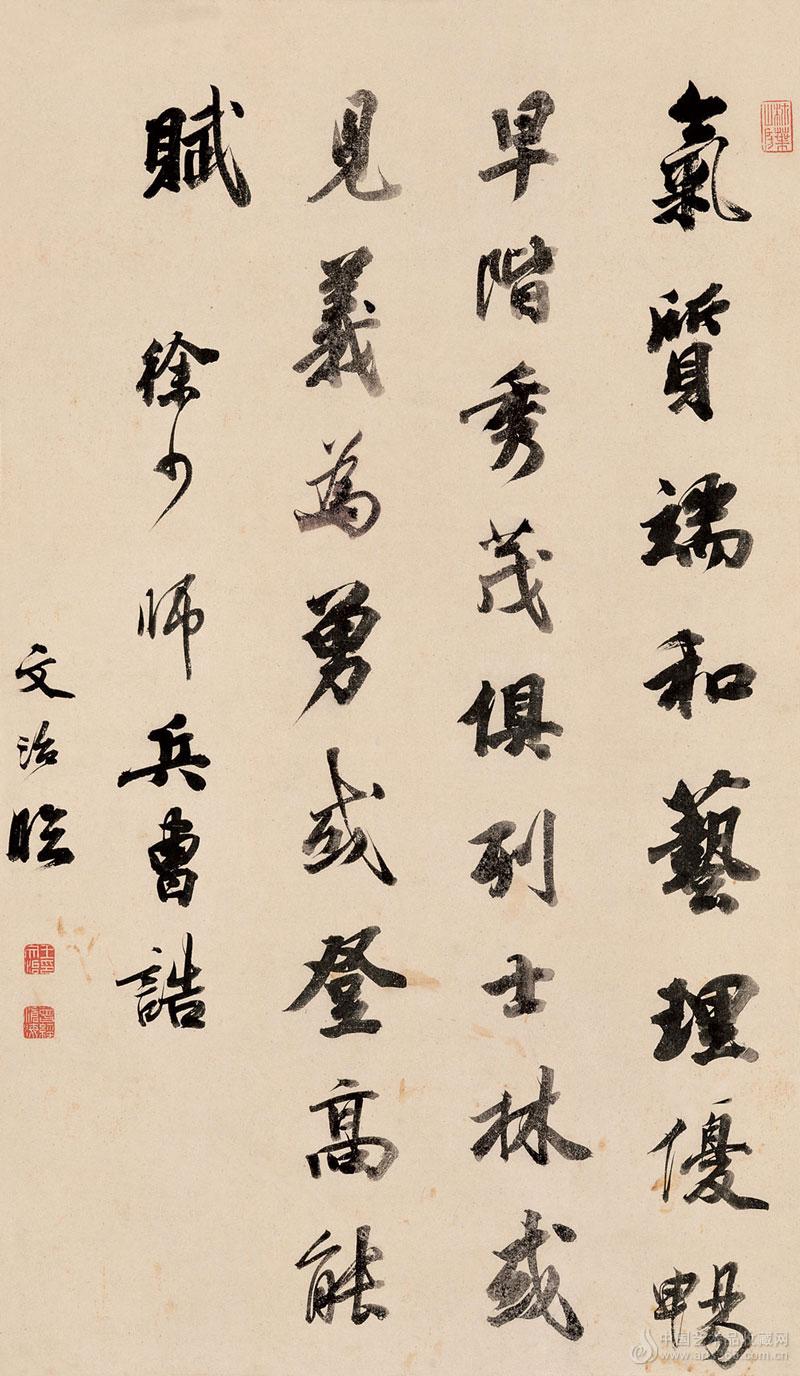 氣質端和藝理優暢
早階秀茂俱列士林或
見義為勇或登高能
賦 徐少師兵曹誥
文治臨
中国艺术品收藏网